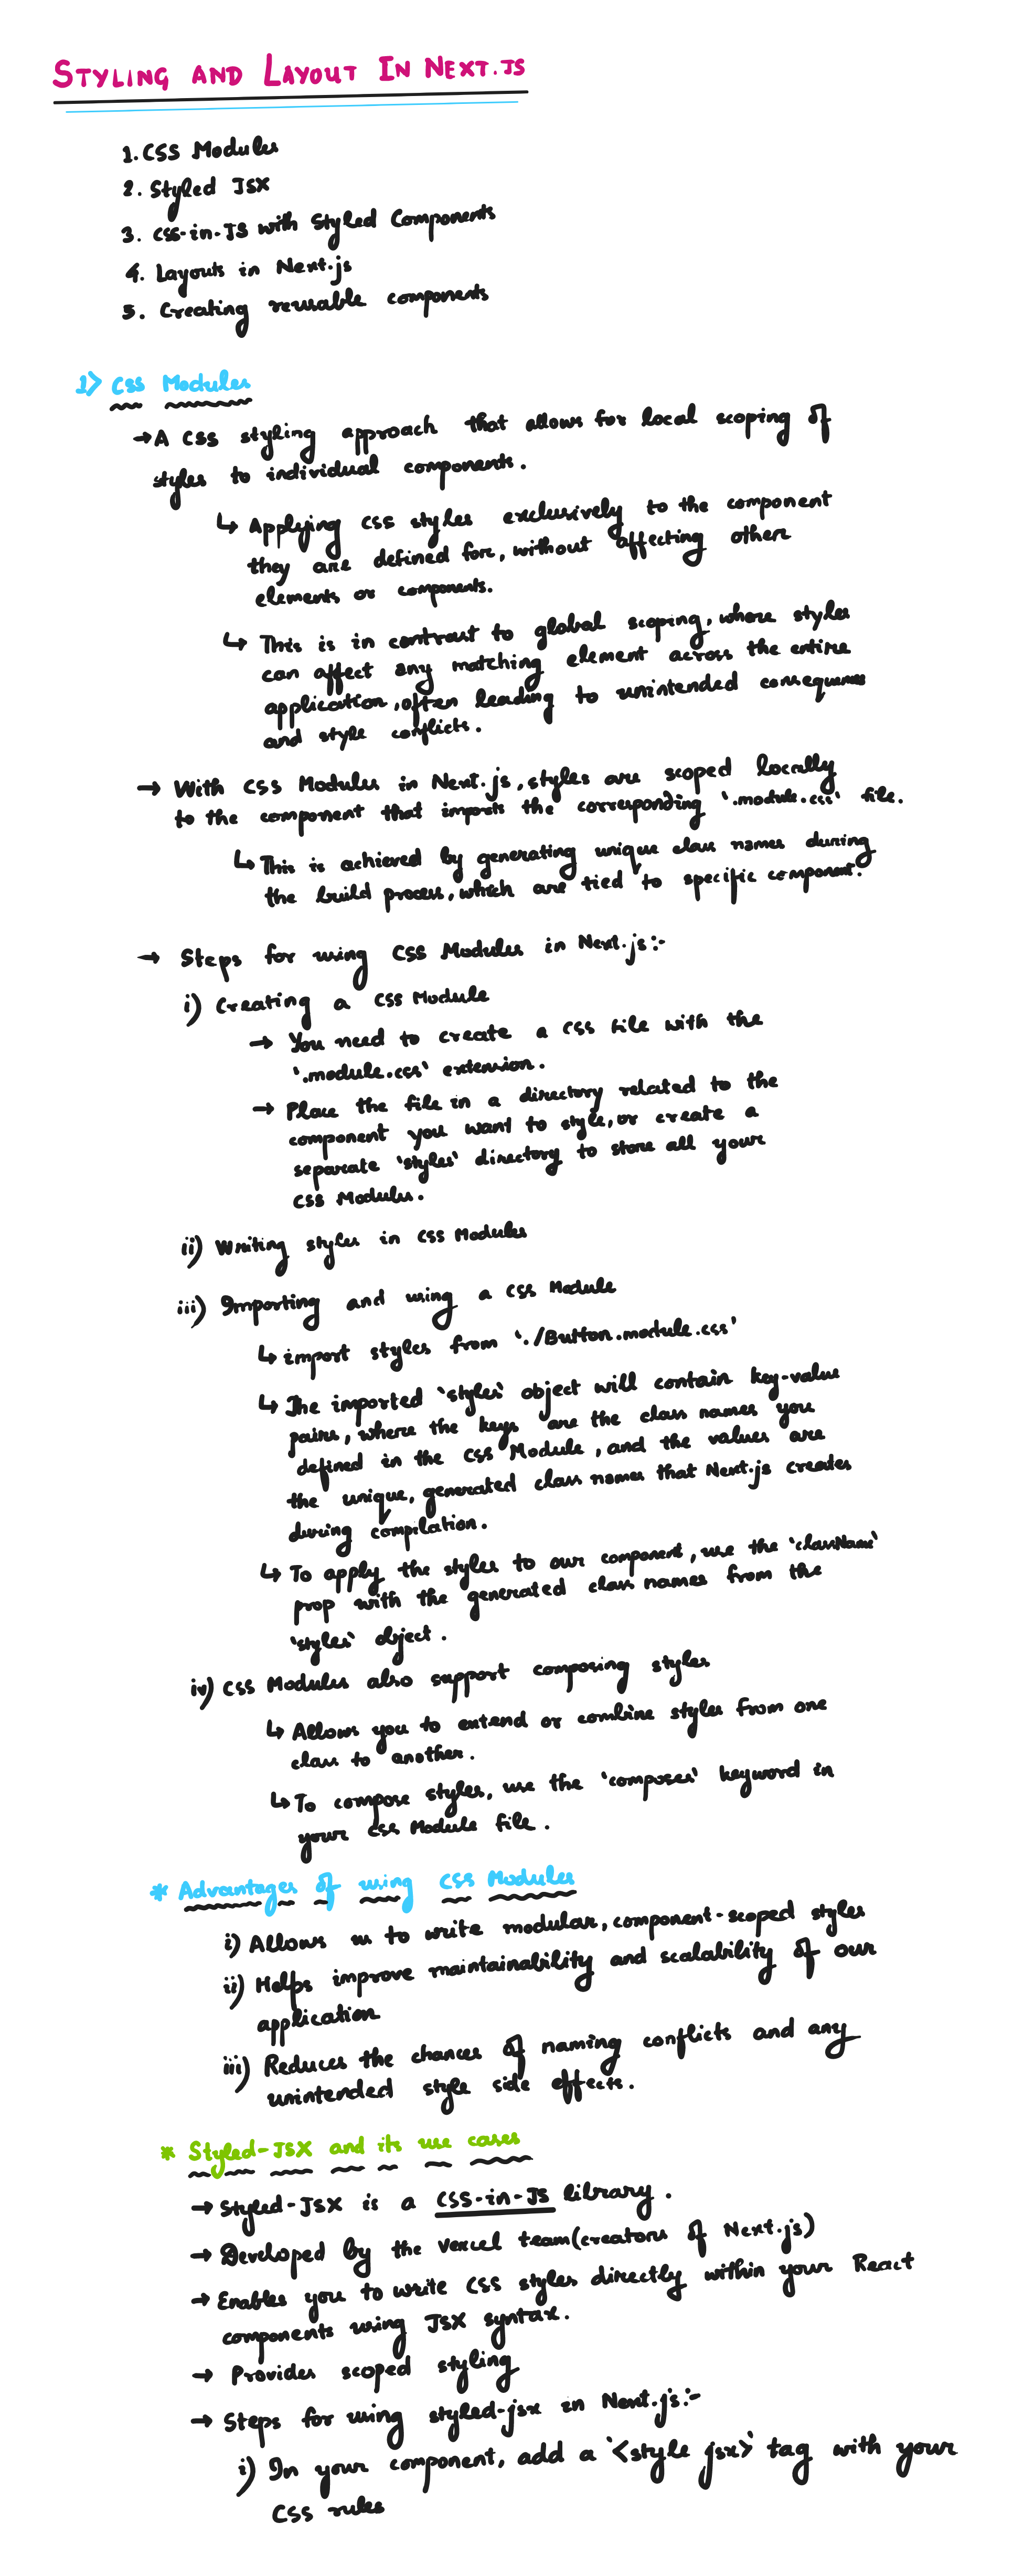 STYLING AND LAYOUT IN NEXT.JS
1. CSS Modules
2. Styled JSX
3. CSS-in-JS with Styled Components
4. Layouts in Next.js
5. Creating reusable components
1> CSS Modules
→ A CSS styling approach that allows for local scoping of
styles to individual components.
↳ Applying CSS styles exclusively to the component
they are defined for, without affecting other
elements or components.
↳ This is in contrast to global scoping, where styles
can affect any matching element across the entire
application, often leading to unintended consequences
and style conflicts.
→ With CSS Modules in Next.js, styles are scoped locally
to the component that imports the corresponding '.module.css' file.
↳ This is achieved by generating unique class names during
the build process, which are tied to specific component.
→ Steps for using CSS Modules in Next.js:-
i) Creating a CSS Module
→ You need to create a CSS file with the
'.module.css' extension.
→ Place the file in a directory related to the
component you want to style, or create a
separate 'styles' directory to store all your
CSS Modules.
ii) Writing styles in CSS Modules
iii) Importing and using a CSS Module
↳ import styles from './Button.module.css'
↳ The imported 'styles' object will contain key-value
pairs, where the keys are the class names you
defined in the CSS Module, and the values are
the unique, generated class names that Next.js creates
during compilation.
↳ To apply the styles to our component, use the 'className'
prop with the generated class names from the
'styles' object.
iv) CSS Modules also support composing styles
↳ Allows you to extend or combine styles from one
class to another.
↳ To compose styles, use the 'composes' keyword in
your CSS Module file.
* Advantages of using CSS Modules
i) Allows us to write modular, component-scoped styles
ii) Helps improve maintainability and scalability of our
application
iii) Reduces the chances of naming conflicts and any
unintended style side effects.
* Styled-JSX and its use cases
→ Styled-JSX is a CSS-in-JS library.
→ Developed by the Vercel team(creators of Next.js)
→ Enables you to write CSS styles directly within your React
components using JSX syntax.
→ Provides scoped styling
→ Steps for using styled-jsx in Next.js:-
i) In your component, add a '<style jsx>' tag with your
CSS rules